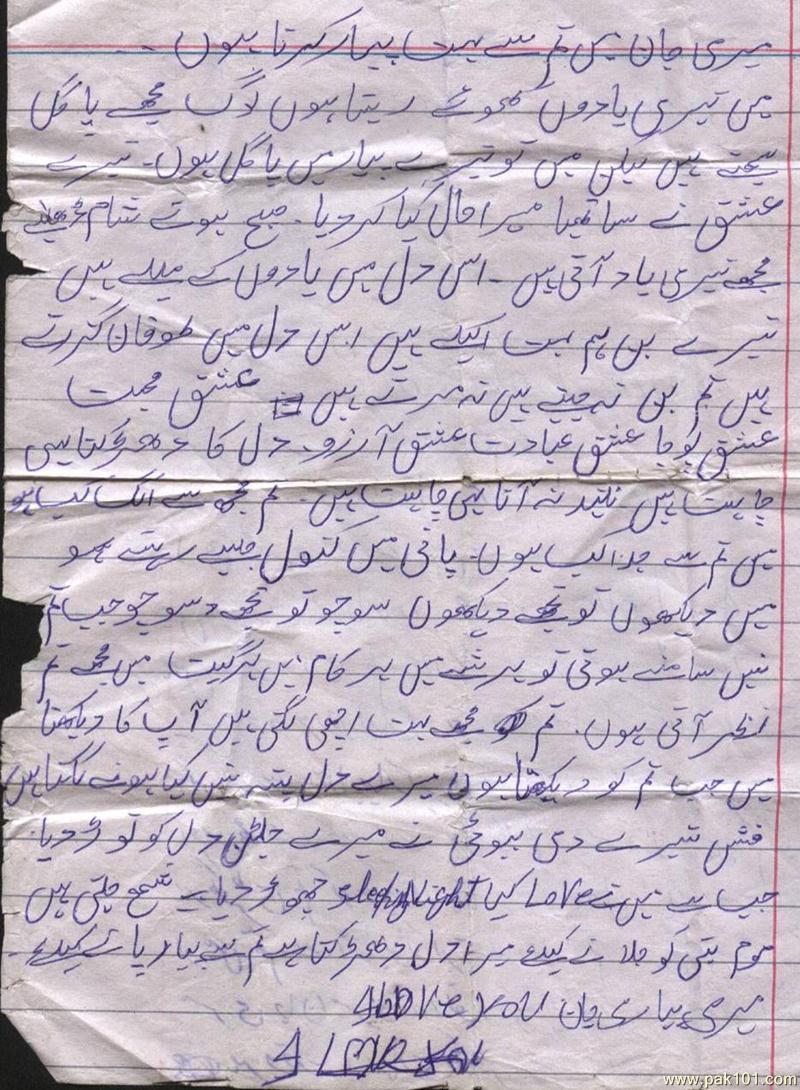 میری جان میں تم سے بہت پیار کرتا ہوں ۔۔
میں تیری یادوں کھوئے رہتا ہوں لوگ مجھے پاگل
میں تو تیرے پیار میں پاگل ہوں۔ تیرے
عشق نے میرا حال کیا کر دیا۔ صبح ہوتے شام
مجھے تیری یاد آتی ہیں ۔ اس دل میں یادوں کے میلے ہیں
تیرے بن ہم بہت اکیلے ہیں اس دل میں طوفان گزرتے
ہیں تم بن نہ جیتے ہیں نہ مرتے ہیں عشق محبت
عشق پوجا عشق عبادت عشق آرزو۔ دل کا دھڑکنا
چاہت ہیں نیند نہ آنا یہی چاہت ہیں۔ تم مجھ سے الگ کب ہو
میں تم سے جدا کب ہوں۔ پانی میں کنول جیسے رہتے ہو
میں دیکھوں تو تجھے دیکھوں سوچو تو تجھے سوچو جب تم
سامنے ہوتی تو ہر شے میں ہر کام میں ہر گیت میں مجھے تم
نظر آتی ہوں. تم مجھے بہت اچھی لگتی ہیں آپ کا دیکھنا
میں جب تم کو دیکھتا ہوں میرے دل پتہ نہیں کیا ہونے لگتا ہیں
تیرے دی نے میرے دل کو توڑ دیا۔
جب سے میں نے Love کیا Sleep Night چھوڑ دیا ہے شمع جلتی ہیں
موم بتی کو جلانے کیلئے میرا دل دھڑکتا ہے تم سے پیار پانے کیلئے۔
میری پیاری جان I Love you
I Love You
www.pak101.com